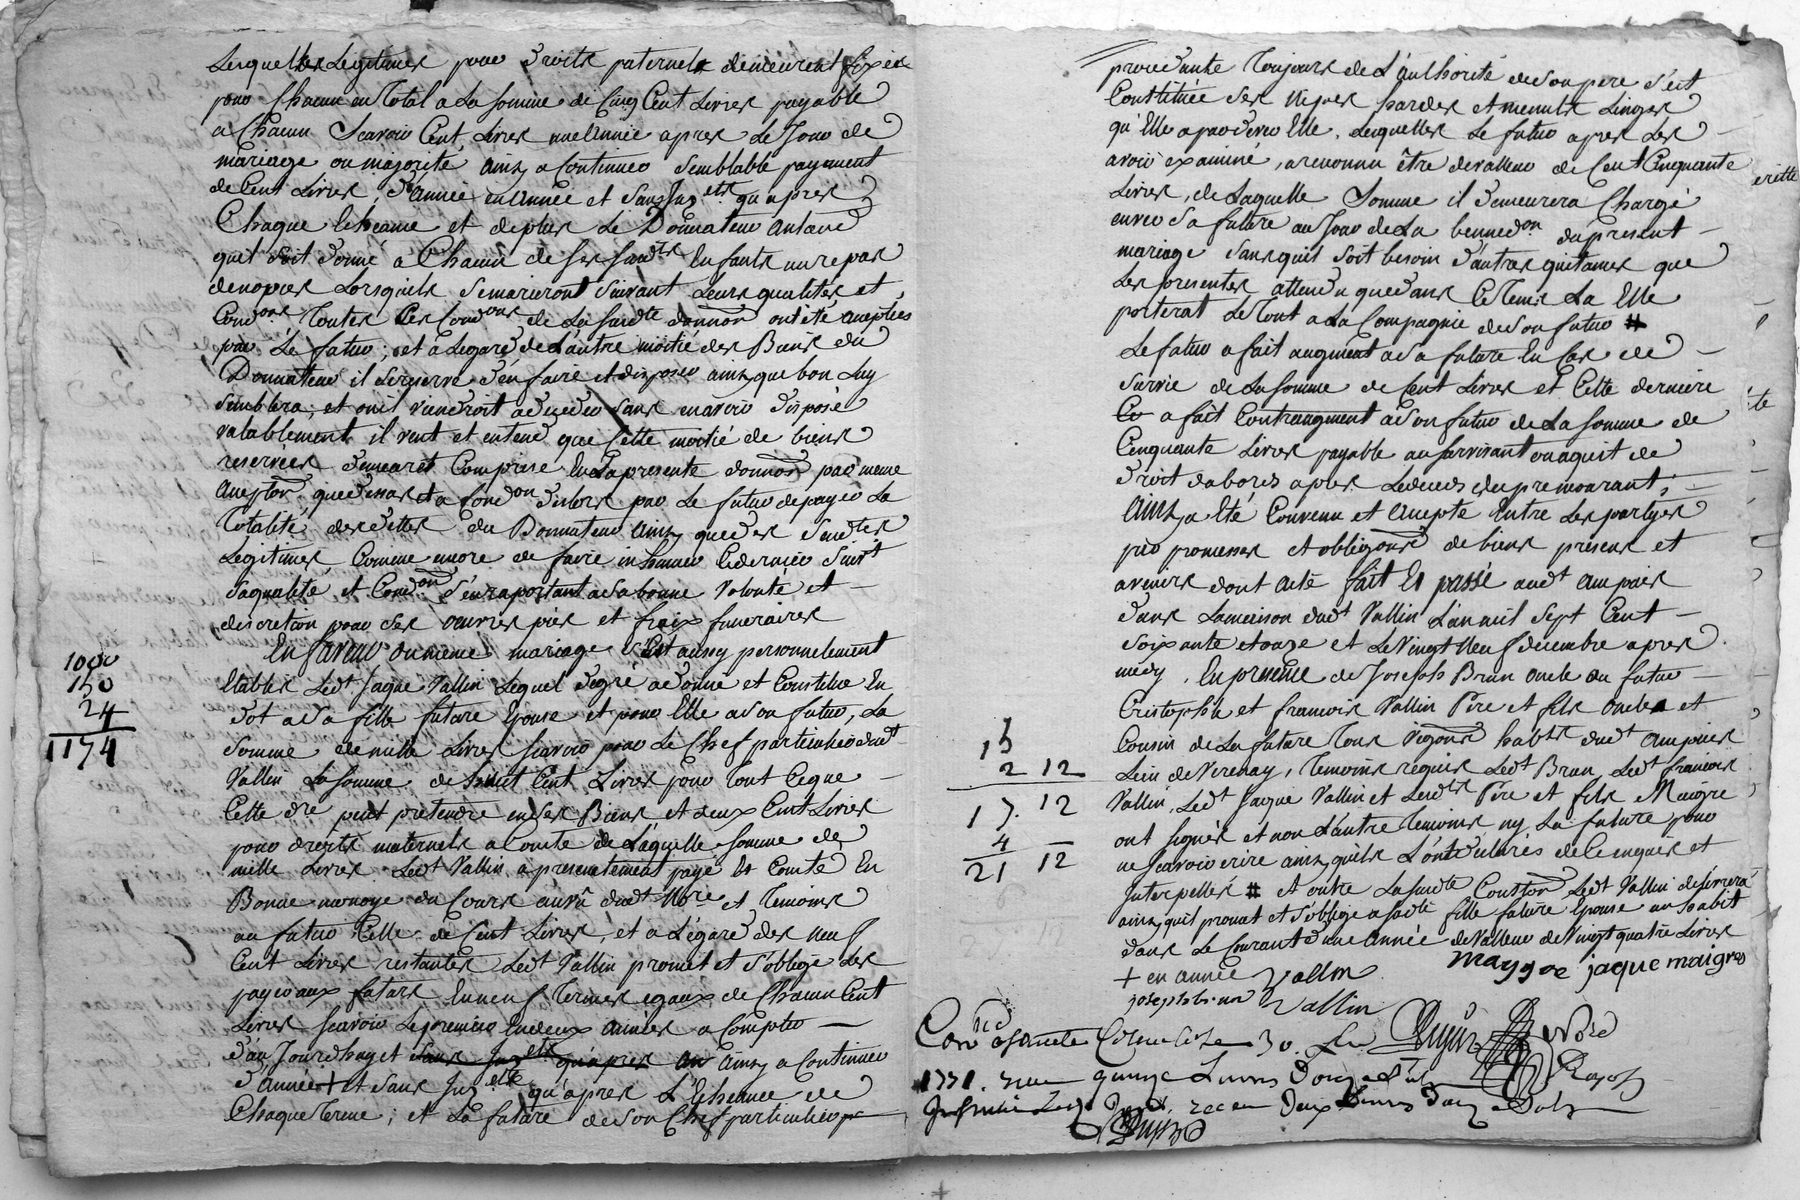 Lesquelles Legitimes pour droits paternels demeurent fixés
pour Chacun en Total a La somme de Cinq Cent Livres payable
a Chacun Scavoir Cent Livres une année apres Le Jour de
mariage ou majorité ainsy a Continuer semblable payement
de Cent Livres, d'année en année et sans qu'apres
Chaque Echeance et deplus Le Donnateur
quil soit donné a Chacun de ses Enfants un repas
de nopces Lorsquils se marieront suivant Leurs qualités et
Condons Toutes Ces Condons de La sudte donnaon ont été aceptées
par Le futur; et a Legard de Lautre moitié des Biens du
Donnateur il se reserve d'en faire et disposer ainsy que bon Luy
semblera, et ou il viendroit a deceder sans en avoir disposé
valablement, il veut et entend que Cette moitié de biens
reservées demeuret Comprise En La presente donnaon par meme
que dessus et a Condon par Le futur de payer La
Totalité des dettes du Donnateur ainsy que des sudtes
Legitimes Comme encore de faire inhumer Ce dernier suivt
sa qualité et Condon s'en raportant a sa bonne volonté et
discretion pour ses oeuvres pies et fraix funeraires
En faveur du meme mariage s'est aussy personnelement
Etablis Ledt Jaque Vallin Lequel de gré a donné et Constitué En
dot a sa fille future Epouse et pour Elle a son futur, La
somme de mille Livres scavoir pour Le Chef particulier dudt
Vallin La somme de huit Cent Livres pour tout Ceque
Cette dre peut pretendre en ses Biens et deux Cent Livres
pour droits maternels a Comte de Laquelle somme de
mille Livres Ledt Vallin a presentement payé Et Comté En
Bonne monoye du Cours au vû dudt Nore et Temoins
au futur Celle de Cent Livres, et a L'égard des neuf
Cent Livres restantes Ledt Vallin promet et s'oblige Les
payer aux futurs En neuf Termes egaux de Chacun Cent
Livres scavoir Le premier En deux années a Compter
d'aujourdhuy et sans qu'apres ainsy a Continuer
d'année + et sans qu'apres L'Echeance de
Chaque Terme; et La future de son Chef particulier
1000
150
24
1174
procedante Toujours de L'authorité de son pere s'est
Constituée ses nipes hardes et menuts Linges
qu'Elle a par devers Elle, Lesquelles Le futur apres Les
avoir examiné, a reconnu être de valleur de Cent Cinquante
Livres, de Laquelle somme il demeurera Chargé
envers sa future au Jour de La benneon du present
mariage sans quil soit besoin d'autres quitances que
Les presentes attendu que dans Ce Tems La Elle
porterat Le Tout a La Compagnie de son futur #
Le futur a fait augment a sa future En Cas de
survie de La somme de Cent Livres et Cette derniere
a fait Contreaugment a son futur de La somme de
Cinquante Livres payable au survivant
droit d'abord apres Le deces du premourant,
Ainsy a Eté Convenu et acepté Entre Les partyes
par promesses et obligons de biens presens et
avenirs dont acté fait Et passé audt Ampuis
dans La maison dudt Vallin L'an mil sept Cent
soixante et onze et Le vingt neuf decembre apres
midy, En presence de Joseph Brun oncle du futur
Cristophle et francois Vallin Pere et fils oncle et
Cousin de La future Tous vigons habts dudt Ampuis
Lieu de Verenay, Temoins requis Ledt Brun, Ledt francois
Vallin, Ledt Jaque Vallin et Lesdts Pere et fils Maigre
ont signés et non L'autre Temoins ny La future pour
ne scavoir ecrire ainsy quils L'ont declarés de Ce enquis et
Interpellés # et outre La sudte Conston Ledt Vallin delivrera
ainsy quil promet et s'oblige a sadte fille future Epouse un habit
dans Le Courant d'une année de valleur de vingt quatre Livres
+ en année
Vallin
maygre jaque maigre
joseph brun
Vallin
15
2 12
17. 12
4
21 12
Conlé a Condrieu Le 30.
1771. recu quinze Livres douze sols
recu deux Livres douze sols